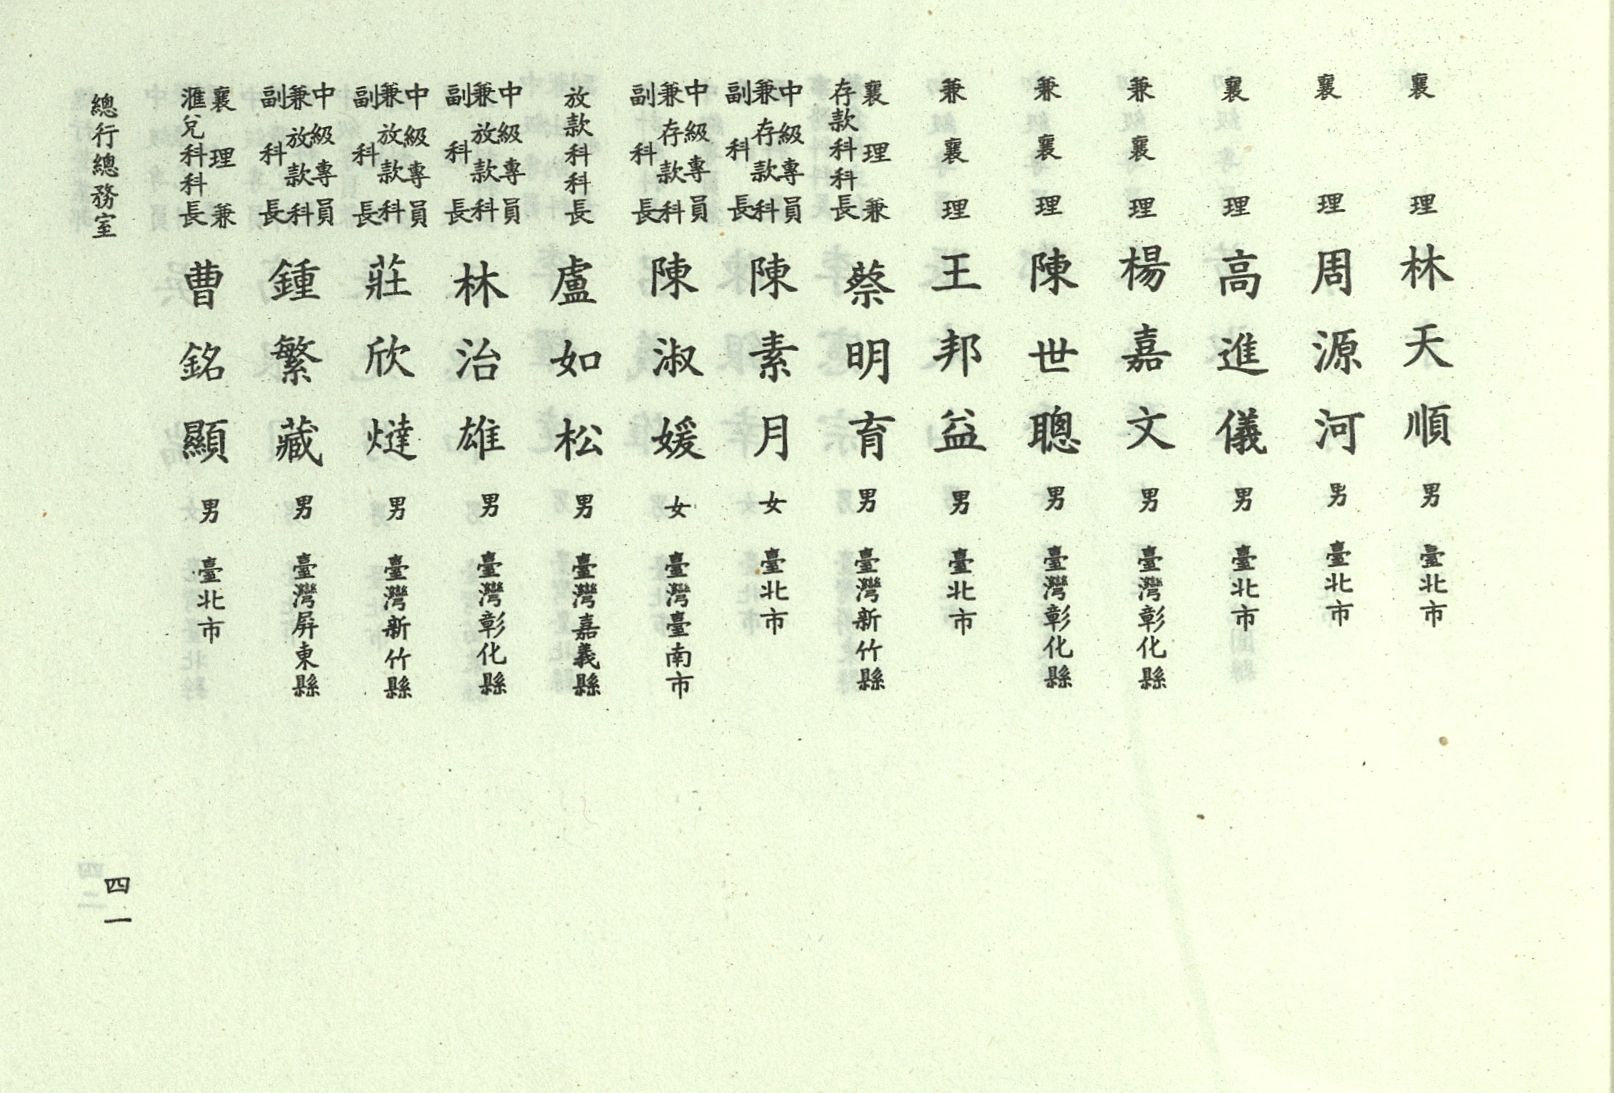 襄理 林天順 男 臺北市
襄理 周源河 男 臺北市
襄理 高進儀 男 臺北市
兼襄理 楊嘉文 男 臺灣彰化縣
兼襄理 陳世聰 男 臺灣彰化縣
兼襄理 王邦益 男 臺北市
襄理兼存款科科長 蔡明育 男 臺灣新竹縣
中級專員兼存款科副科長 陳素月 女 臺北市
中級專員兼存款科副科長 陳淑媛 女 臺灣臺南市
放款科科長 盧如松 男 臺灣嘉義縣
中級專員兼放款科副科長 林治雄 男 臺灣彰化縣
中級專員兼放款科副科長 莊欣燵 男 臺灣新竹縣
中級專員兼放款科副科長 鍾繁藏 男 臺灣屏東縣
襄理兼滙兌科科長 曹銘顯 男 臺北市
總行總務室
四一